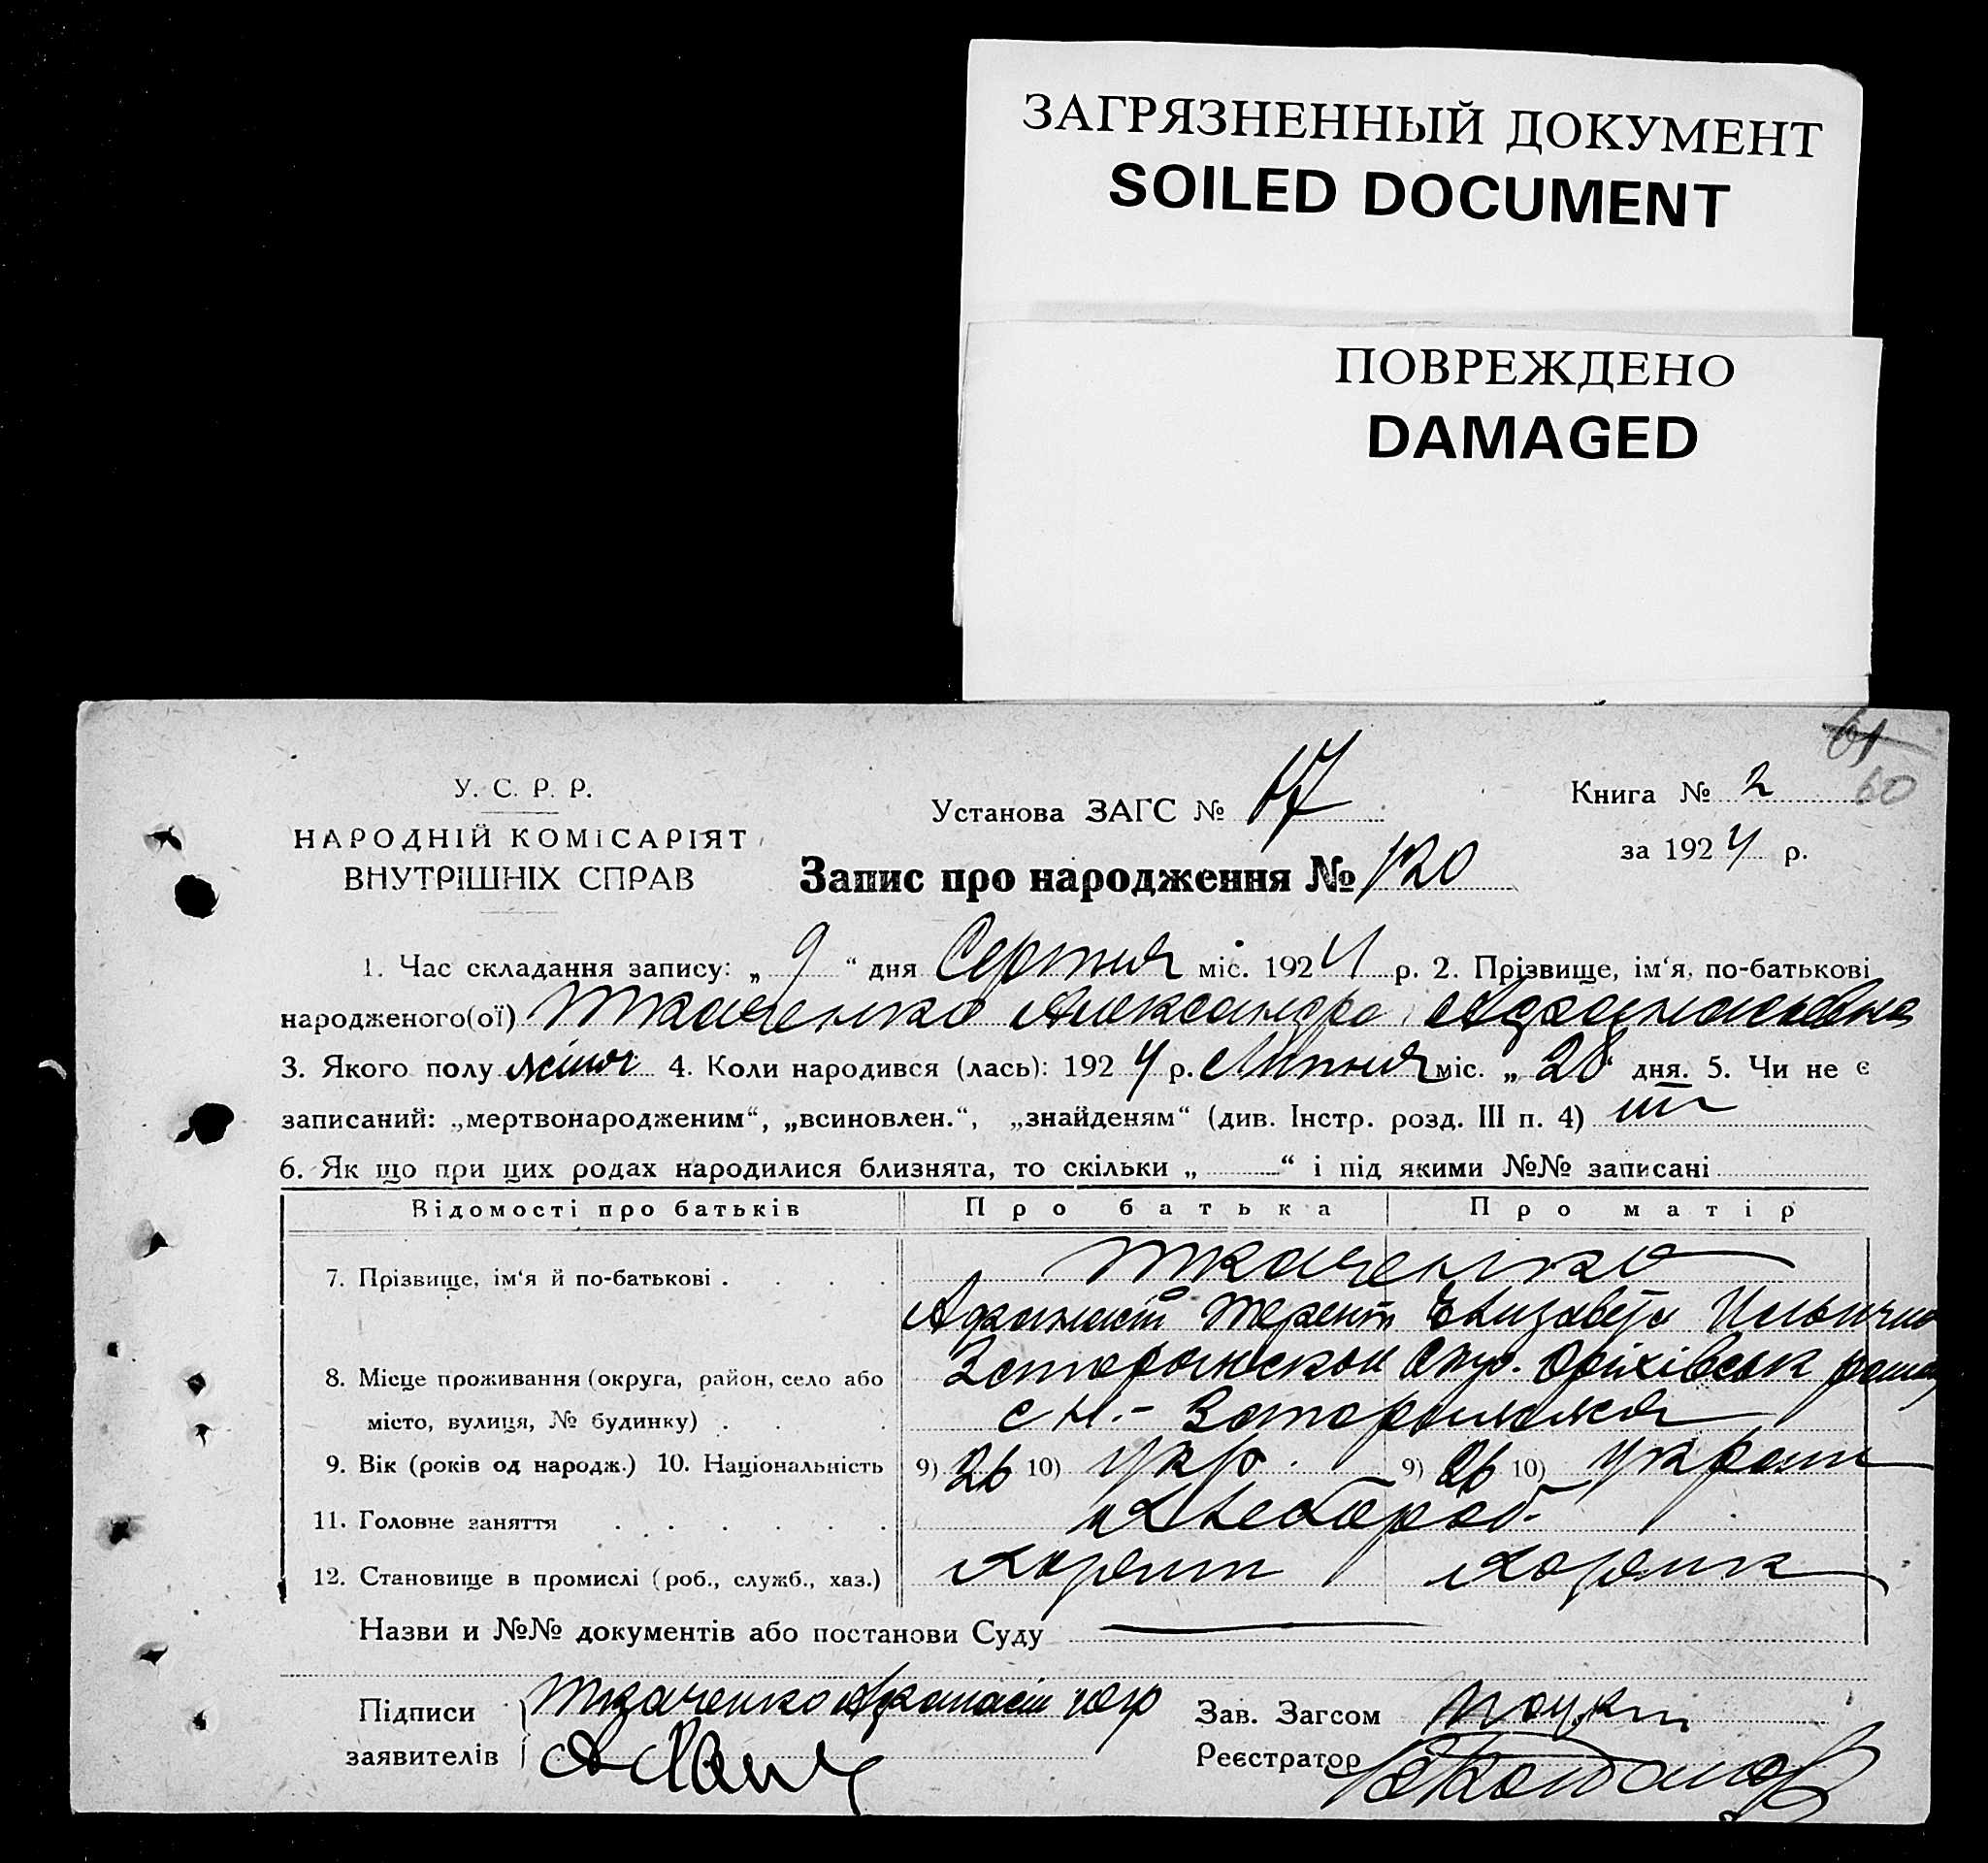 ЗАГРЯЗНЕННЫЙ ДОКУМЕНТ
SOILED DOCUMENT
ПОВРЕЖДЕНО
DAMAGED
61
60
У. С. Р. Р.
НАРОДНІЙ КОМІСАРІЯТ
ВНУТРІШНІХ СПРАВ
Установа ЗАГС № 17
Книга № 2
за 1924 р.
Запис про народження № 120
1. Час складання запису: „ 9 “ дня Серпня міс. 1924 р. 2. Прізвище, ім‘я, по-батькові
народженого(ої) Ткаченко Александра Афанасьевна
3. Якого полу жіноч 4. Коли народився (лась): 1924 р. Липня міс. „ 28 “ дня. 5. Чи не є
записаний: „мертвонародженим“, „всиновлен.“, „знайденям“ (див. Інстр. розд. III п. 4)
6. Як що при цих родах народилися близнята, то скільки „ “ і під якими №№ записані
Відомості про батьків Про батька Про матір
7. Прізвище, ім‘я й по-батькові . . . . Ткаченко
Афанасій Терент Елизавета Ильинич
8. Місце проживання (округа, район, село або
місто, вулиця, № будинку) . . . .
9. Вік (років од народж.) 10. Національність 9) 26 10) укр. 9) 26 10) украин
11. Головне заняття . . . . . . Хлебороб.
12. Становище в промислі (роб., служб., хаз.)
Назви и №№ документів або постанови Суду
Підписи Ткаченко Афанасій
заявителів
Зав. Загсом
Реєстратор